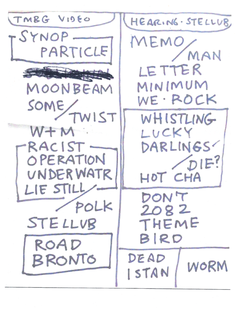 TMBG VIDEO
SYNOP
PARTICLE
MOONBEAM
SOME/
TWIST
W+M
RACIST
OPERATION
UNDERWATR
LIE STILL
/POLK
STELLUB
ROAD
BRONTO
HEARING·STELLUB
MEMO/
MAN
LETTER
MINIMUM
WE·ROCK
WHISTLING
LUCKY
DARLINGS
/DIE?
HOT CHA
DON'T
2082
THEME
BIRD
DEAD
ISTAN
WORM